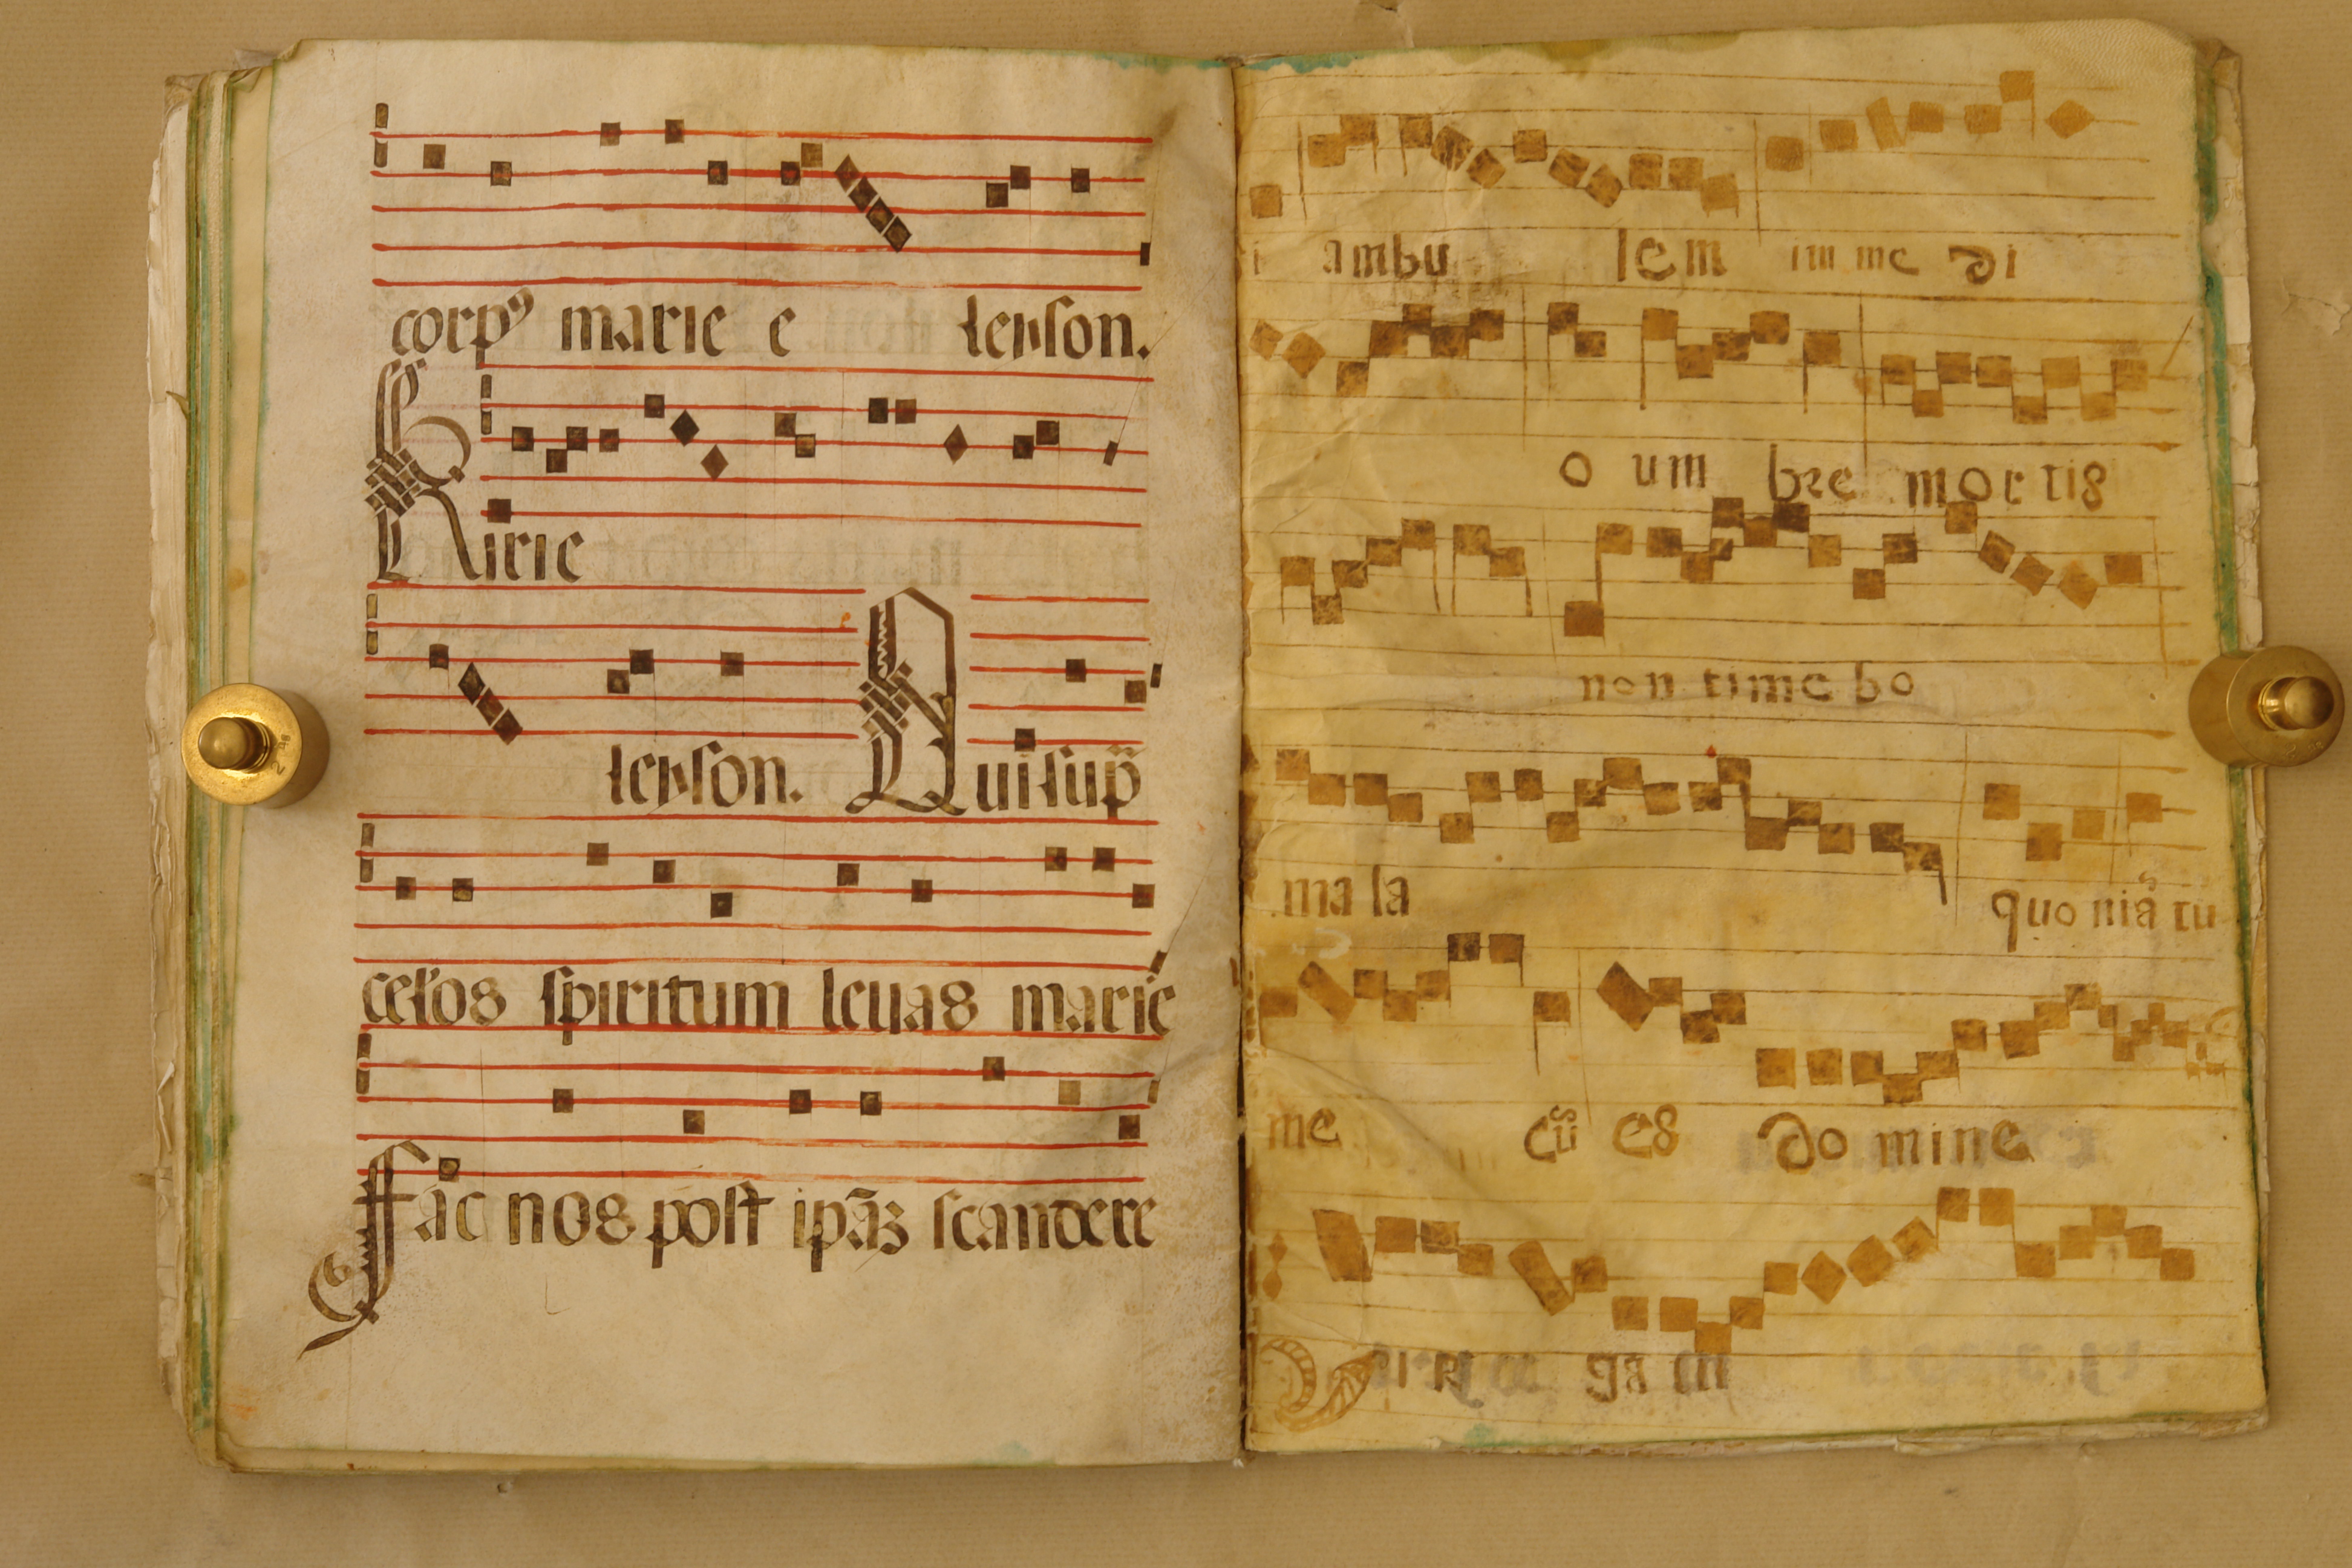 corpꝰ marie e leyson.
Kirie
leyson. Qui sup̄
celos spiritum leuas marie
Fac nos post ip̄aȝ scandere
i ambu lem im me di
o um bre mortis
non time bo
ma la quo niā tu
me cū es do mine
ga m